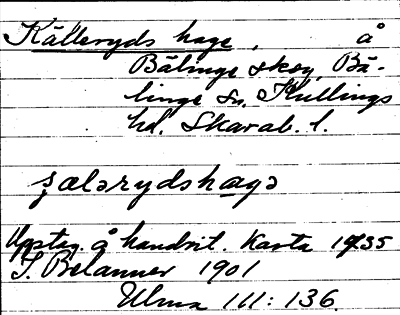 Källeryds hage, å
Bälinge skog, Bä-
linge sn, Kullings
hd. Skarab. l.
ʂælərydshagə
Uppteg. å handrit. karta 1735
S. Belanner 1901
Ulma 111: 136.